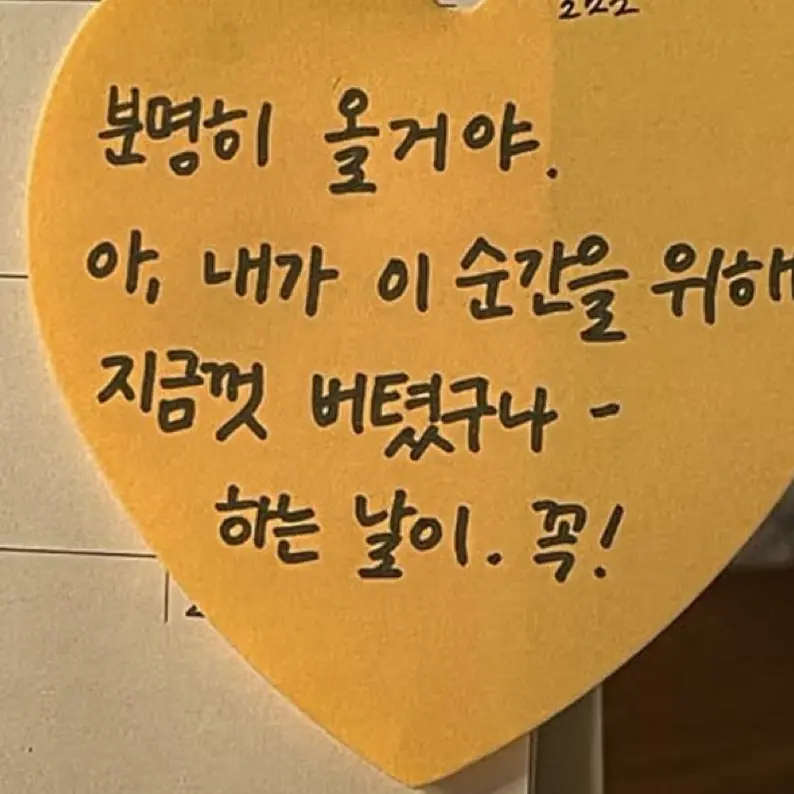 분명히 올거야.
아, 내가 이 순간을 위해
지금껏 버텼구나 -
하는 날이. 꼭!